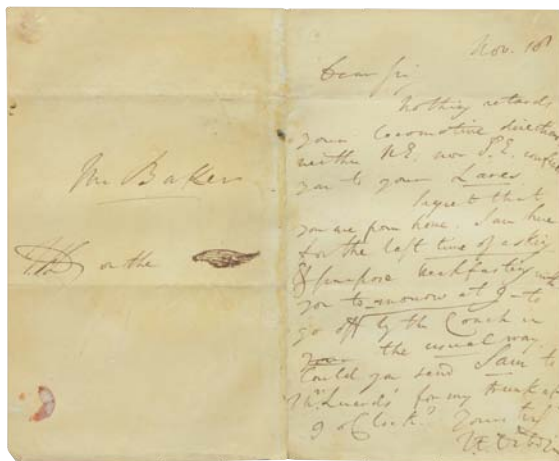 Mr. Baker
on the
Nov. 18
Dear Sir
Nothing retards
your locomotive
neither N.E. nor S.E.
you to your Lares
I regret that
you are from home. I am here
for the last time of
& propose breakfasting with
you to-morrow at 9 - to
go off by the Coach in
the usual way
Could you send Sam to
for my trunk
9 o'Clock? Yours